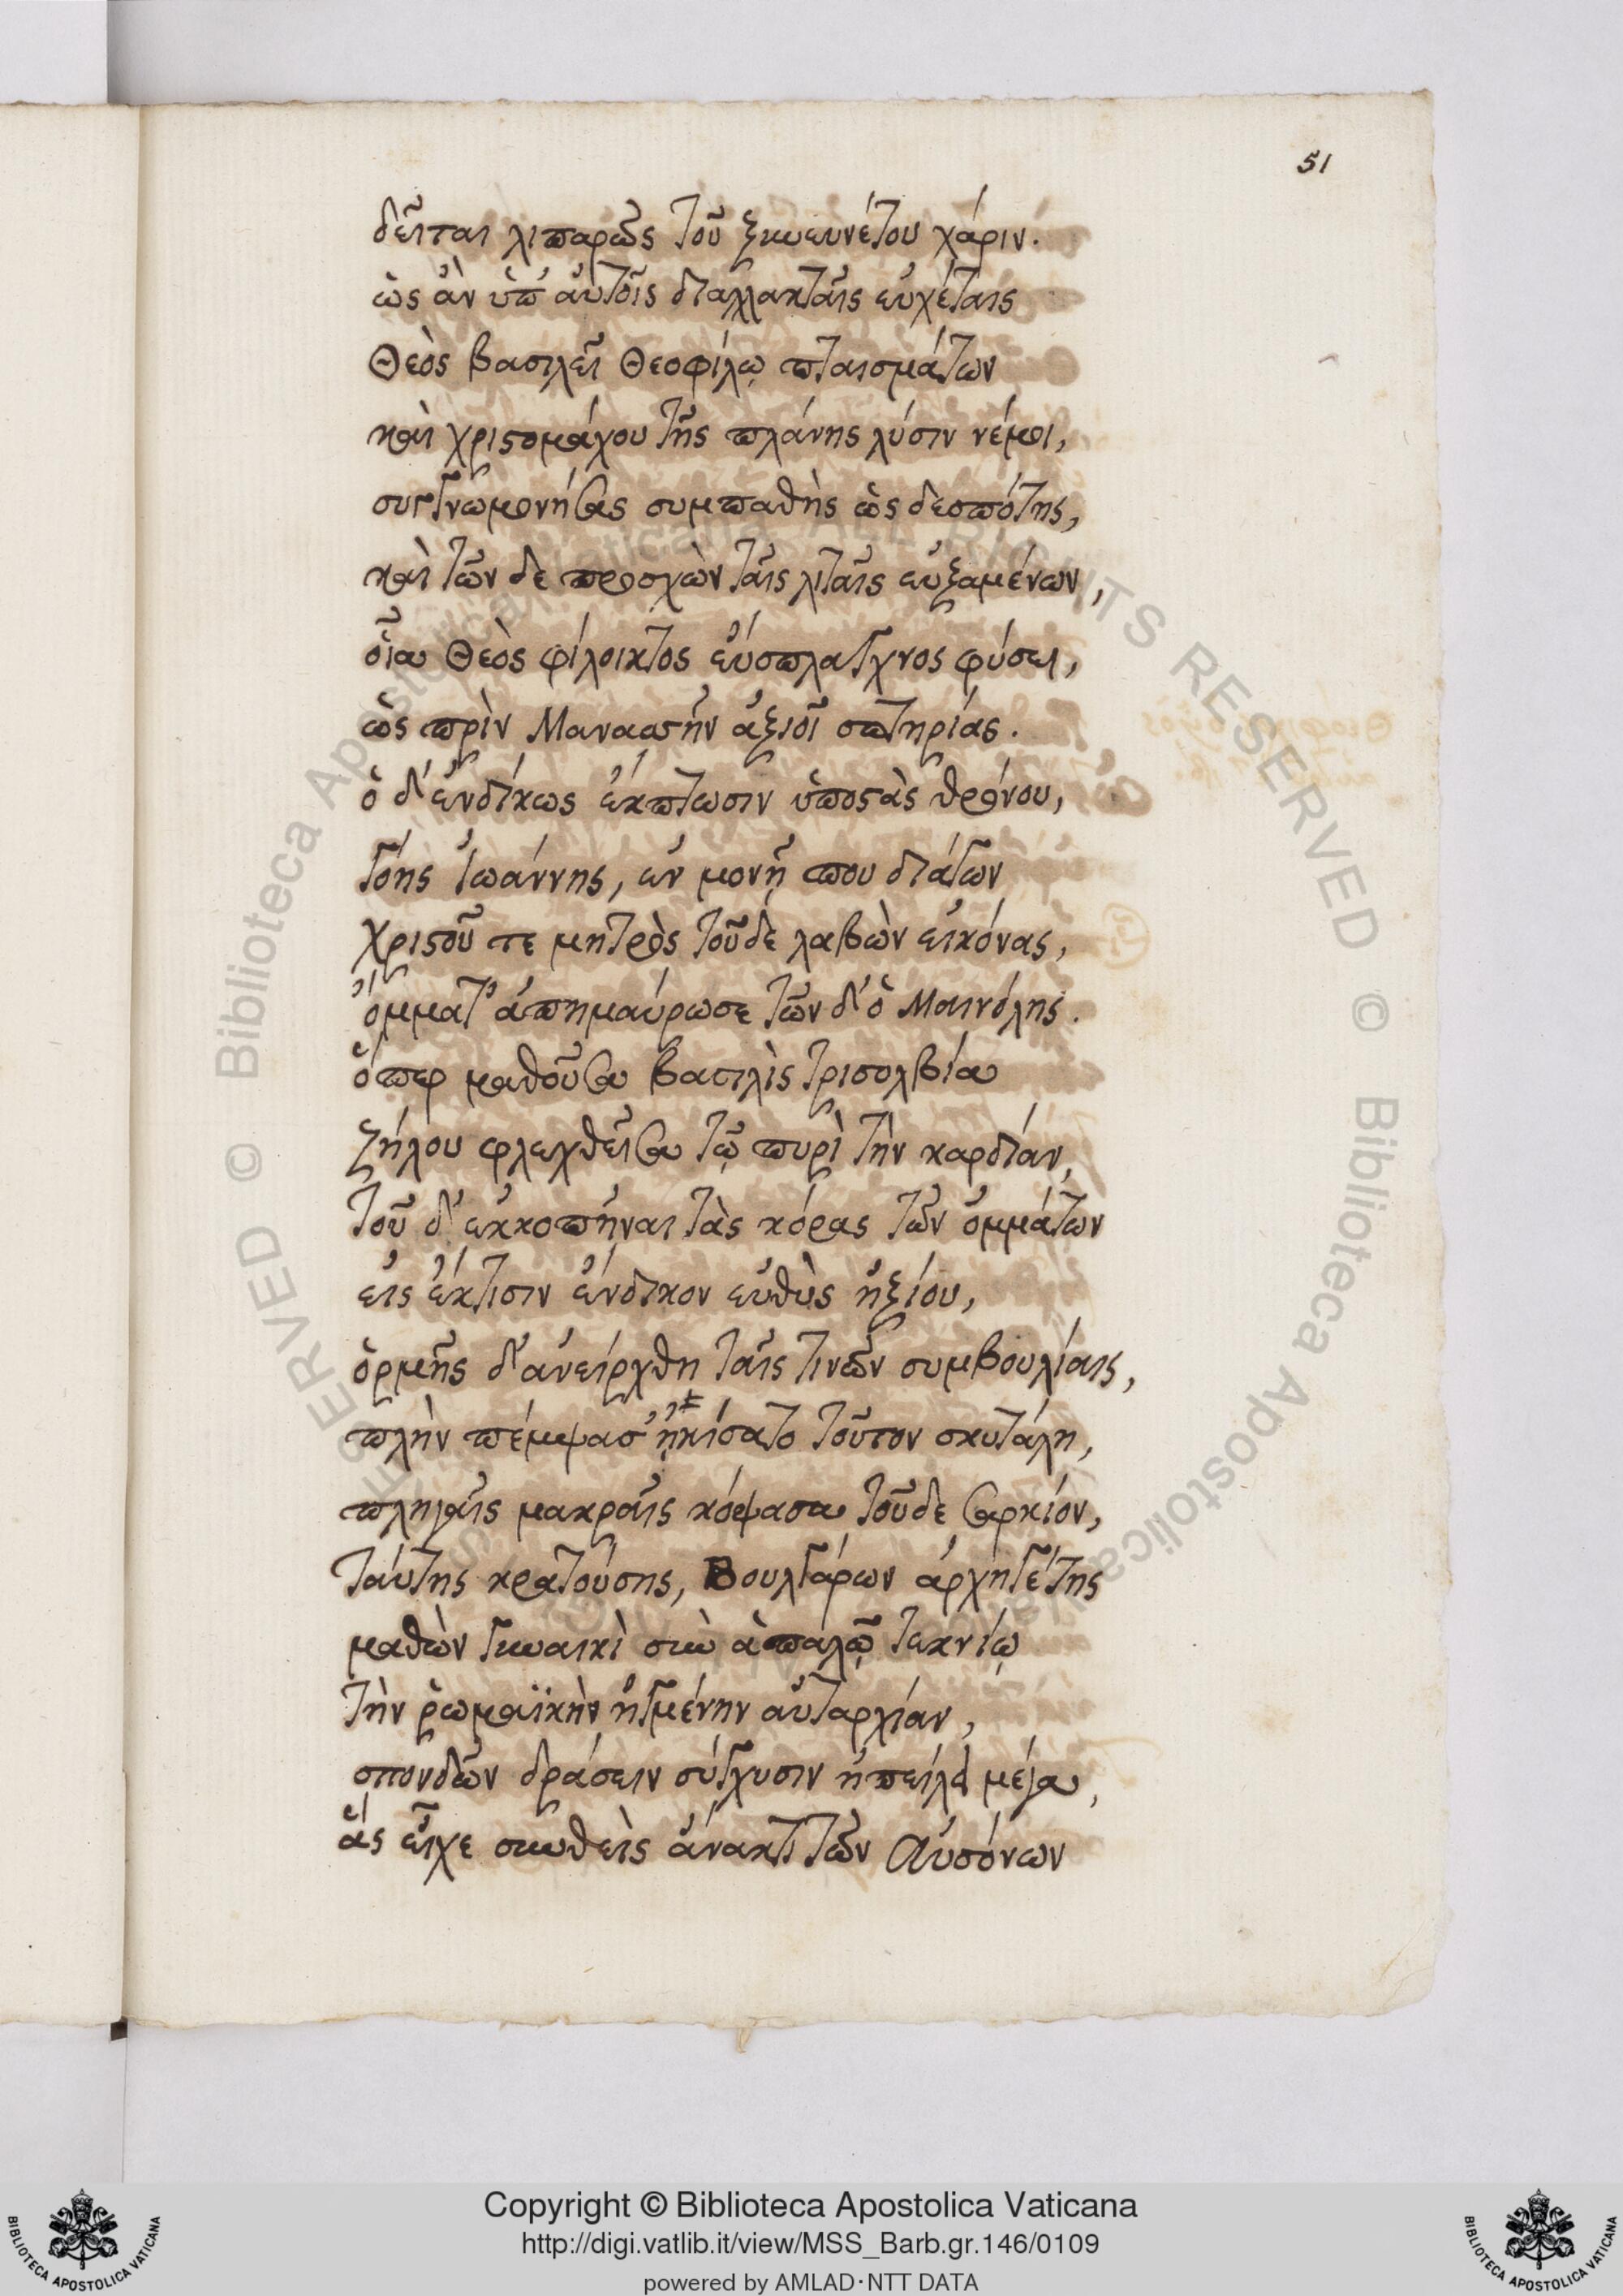 51
δεῖται λιπαρῶς τοῦ ξυνευνέτου χάριν.
ὡς ἂν ὑπ' αὐτοῖς διαλλακταῖς εὐχέταις
Θεὸς βασιλεῖ Θεοφίλῳ πταισμάτων
καὶ χριστομάχου τῆς πλάνης λύσιν νέμοι,
συγγνωμονήσας συμπαθὴς ὡς δεσπότης,
καὶ τῶν δε προσχὼν ταῖς λιταῖς εὐξαμένων,
οἷα Θεὸς φίλοικτος εὔσπλαγχνος φύσει,
ὡς πρὶν Μανασσῆν ἀξιοῖ σωτηρίας.
ὁ δ' ἐνδίκως ἔκπτωσιν ὑποστὰς θρόνου,
γόης Ἰωάννης, ἐν μονῇ που διάγων
χριστοῦ τε μητρὸς τοῦδὲ λαβὼν εἰκόνας,
ὄμματ' ἀπημαύρωσε τῶν δ' ὁ Μαινόλης.
ὅπερ μαθοῦσα βασιλὶς τρισολβία
ζήλου φλεχθεῖσα τῷ πυρὶ τὴν καρδίαν,
τοῦ δ' ἐκκοπῆναι τὰς κόρας τῶν ὀμμάτων
εἰς ἔκτισιν ἔνδικον εὐθὺς ἠξίου,
ὁρμῆς δ' ἀνείρχθη ταῖς τινῶν συμβουλίαις,
πλὴν πέμψασ' ᾐκίσατο τοῦτον σκυτάλῃ,
πληγαῖς μακραῖς κόψασα τοῦδε σαρκίον,
ταύτης κρατούσης, Βουλγάρων ἀρχηγέτης
μαθὼν γυναικὶ σὺν ἁπαλῷ τεκνίῳ
τὴν ῥωμαϊκὴν ἠγμένην αὐταρχίαν,
σπονδῶν δράσειν σύγχυσιν ἠπείλει μέγα,
ἃς εἶχε συνθεὶς ἄνακτι τῶν Αὐσόνων
Copyright © Biblioteca Apostolica Vaticana
http://digi.vatlib.it/view/MSS_Barb.gr.146/0109
powered by AMLAD·NTT DATA
BIBLIOTECA APOSTOLICA VATICANA
BIBLIOTECA APOSTOLICA VATICANA